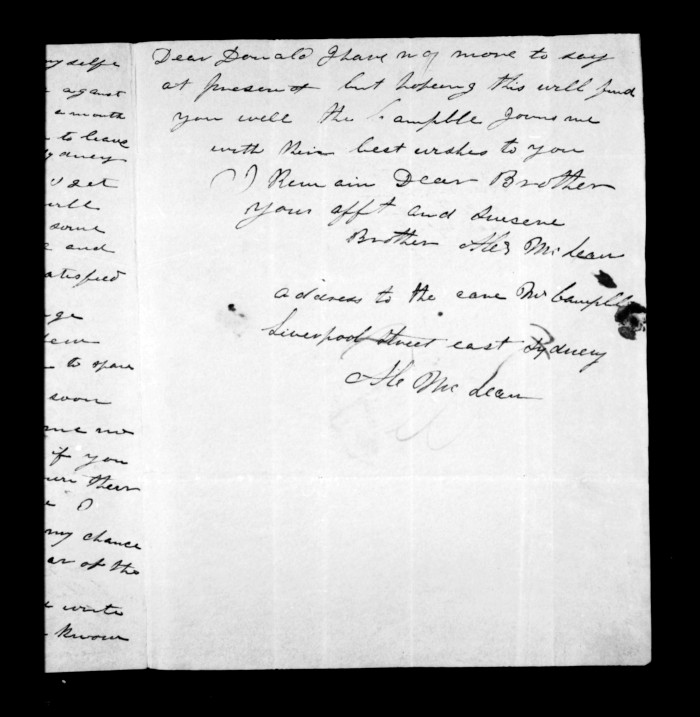 my selfe
against
a month
to leave
Sydney
get
will
some
and
satisfied
to spare
soon
me
if you
there
I
my chance
of the
write
know
Dear Donald I have no more to say
at present but hopeing this will find
you well the Campble Joins me
with their best wishes to you
I Remain Dear Brother
your afft and Sinsere
Brother Alex McLean
address to the care Mr Campble
Liverpool Street east Sydney
Ale McLean